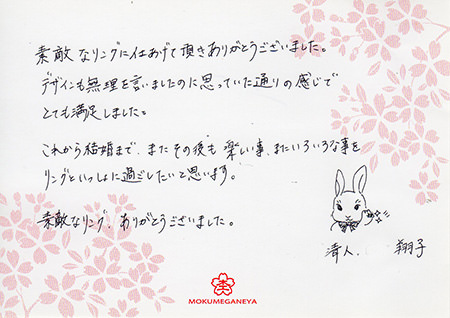 素敵なリングに仕あげて頂きありがとうございました。
デザインも無理を言いましたのに思っていた通りの感じで
とても満足しました。
これから結婚まで、またその後も楽しい事、またいろいろな事を
リングといっしょに過ごしたいと思います。
素敵なリング、ありがとうございました。
清人、翔子
MOKUMEGANEYA